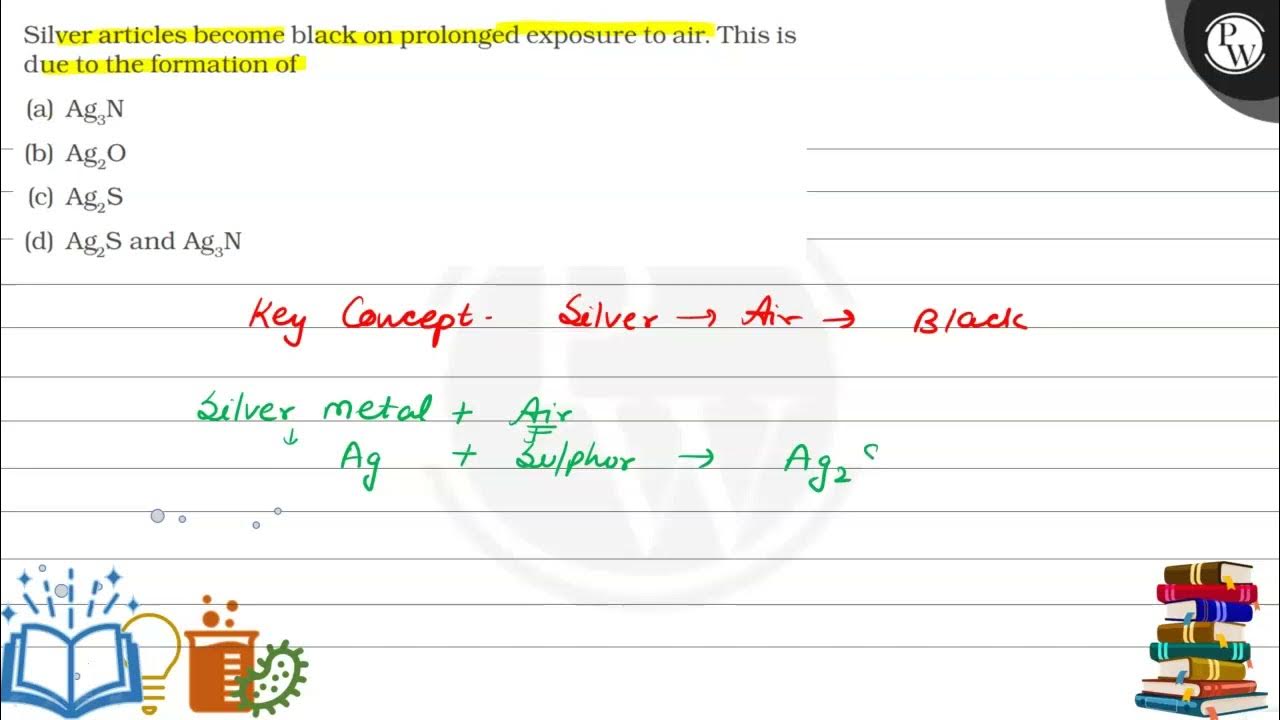 Silver articles become black on prolonged exposure to air. This is
due to the formation of
(a) Ag₃N
(b) Ag₂O
(c) Ag₂S
(d) Ag₂S and Ag₃N
Key Concept - Silver → Air → Black
Silver metal + Air
↓
Ag + Sulphor → Ag₂
PW